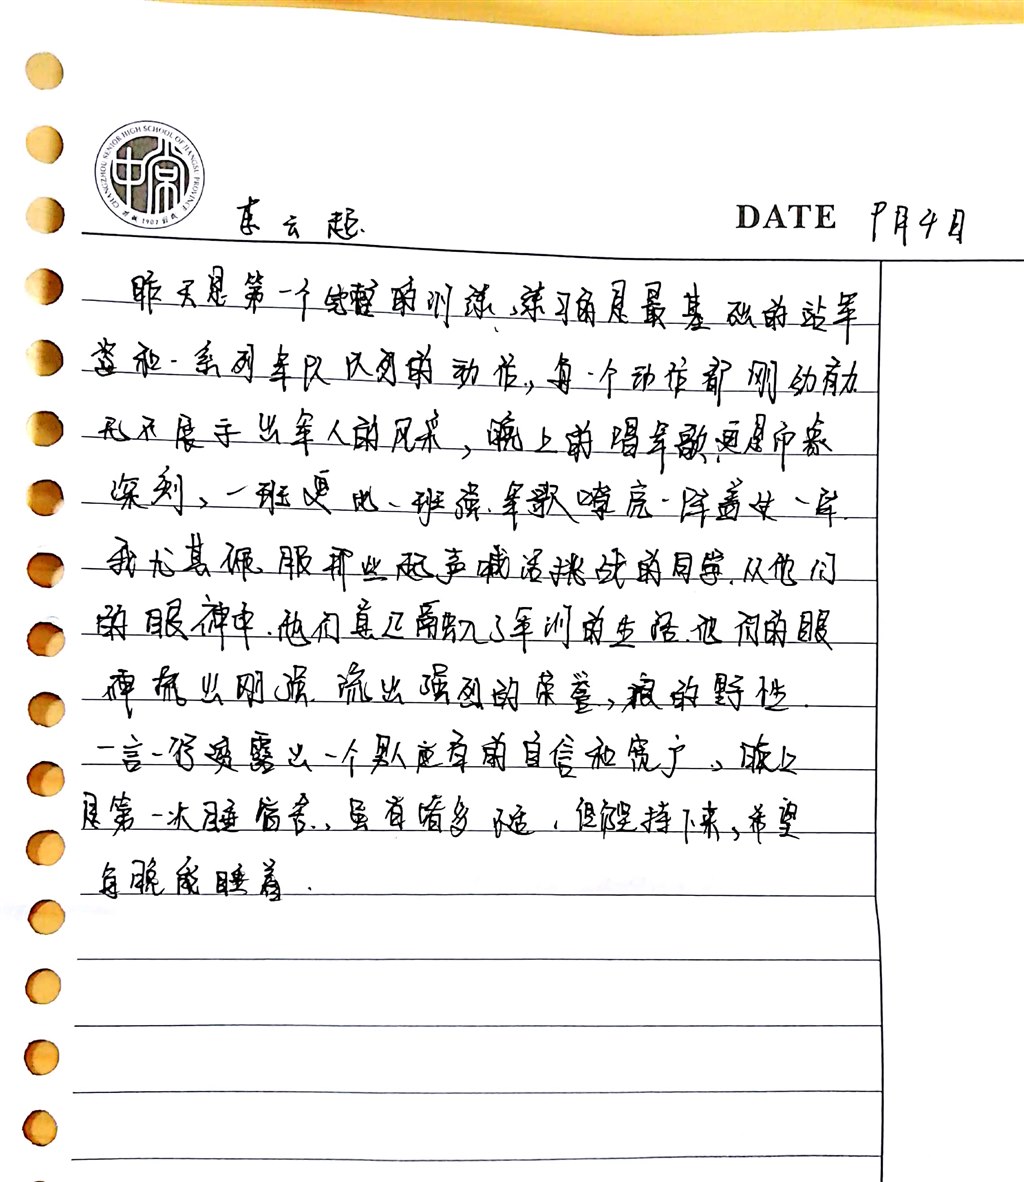 CHANGZHOU SENIOR HIGH SCHOOL OF JIANGSU PROVINCE
1907
云起.
DATE 9月4日
昨天是第一个完整的训练,练习的是最基础的站军
姿和一系列军队队列的动作,每一个动作都刚劲有力
无不展示出军人的风采,晚上的唱军歌更是印象
深刻,一班更比一班强.军歌嘹亮一阵盖过一阵.
我尤其佩服那些起声喊话挑战的同学.从他们
的眼神中.他们真正融入了军训的生活.他们的眼
神流出刚强.流出强烈的荣誉,狼的野性.
一言一行透露出一个男人应有的自信和,晚上
是第一次睡宿舍,虽有诸多不适,但能坚持下来,希望
每晚能睡着.